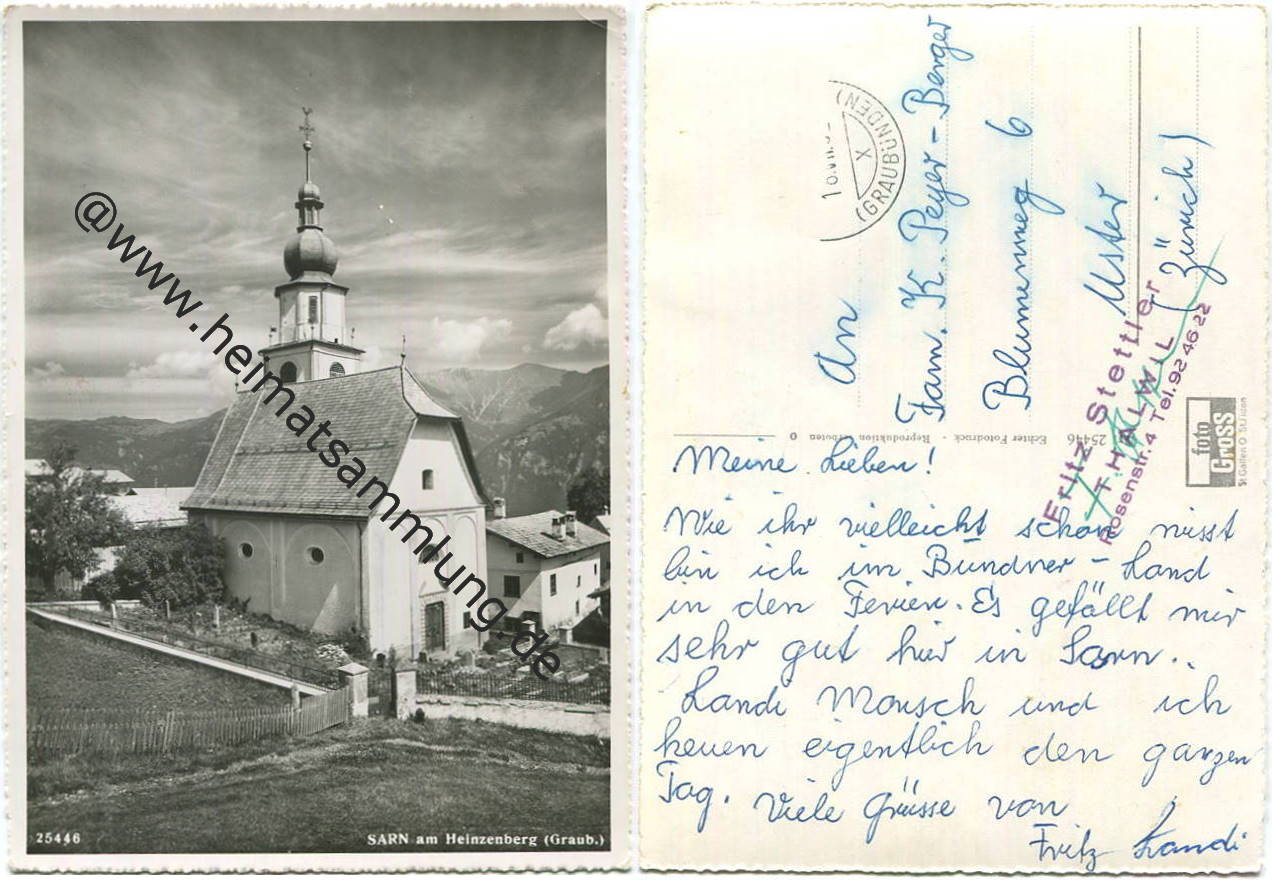 @www.heimatsammlung.de
25446
SARN am Heinzenberg (Graub.)
(GRAUBÜNDEN)
X
An
Fam. K. Peyer-Berger
Blumenweg 6
Uster
(Zürich)
Fritz Stettler
THALWIL
Rosenstr. 4 Tel. 92 46 22
foto
Gross
St. Gallen
25446
Echter Fotodruck - Reproduktion verboten
Meine Lieben!
Wie ihr vielleicht schon wisst
bin ich im Bündner-Land
in den Ferien. Es gefällt mir
sehr gut hier in Sarn..
Landi Monsch und ich
heuen eigentlich den ganzen
Tag. Viele Grüsse von
Fritz Landi